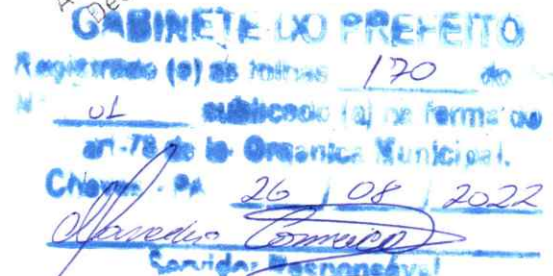 GABINETE DO PREFEITO
Registrado (a) às folhas 170 do
N° 01 publicado (a) na forma do
art-78 da Organica Municipal.
Chaves - PA 26 / 08 / 2022
Servidor Responsável